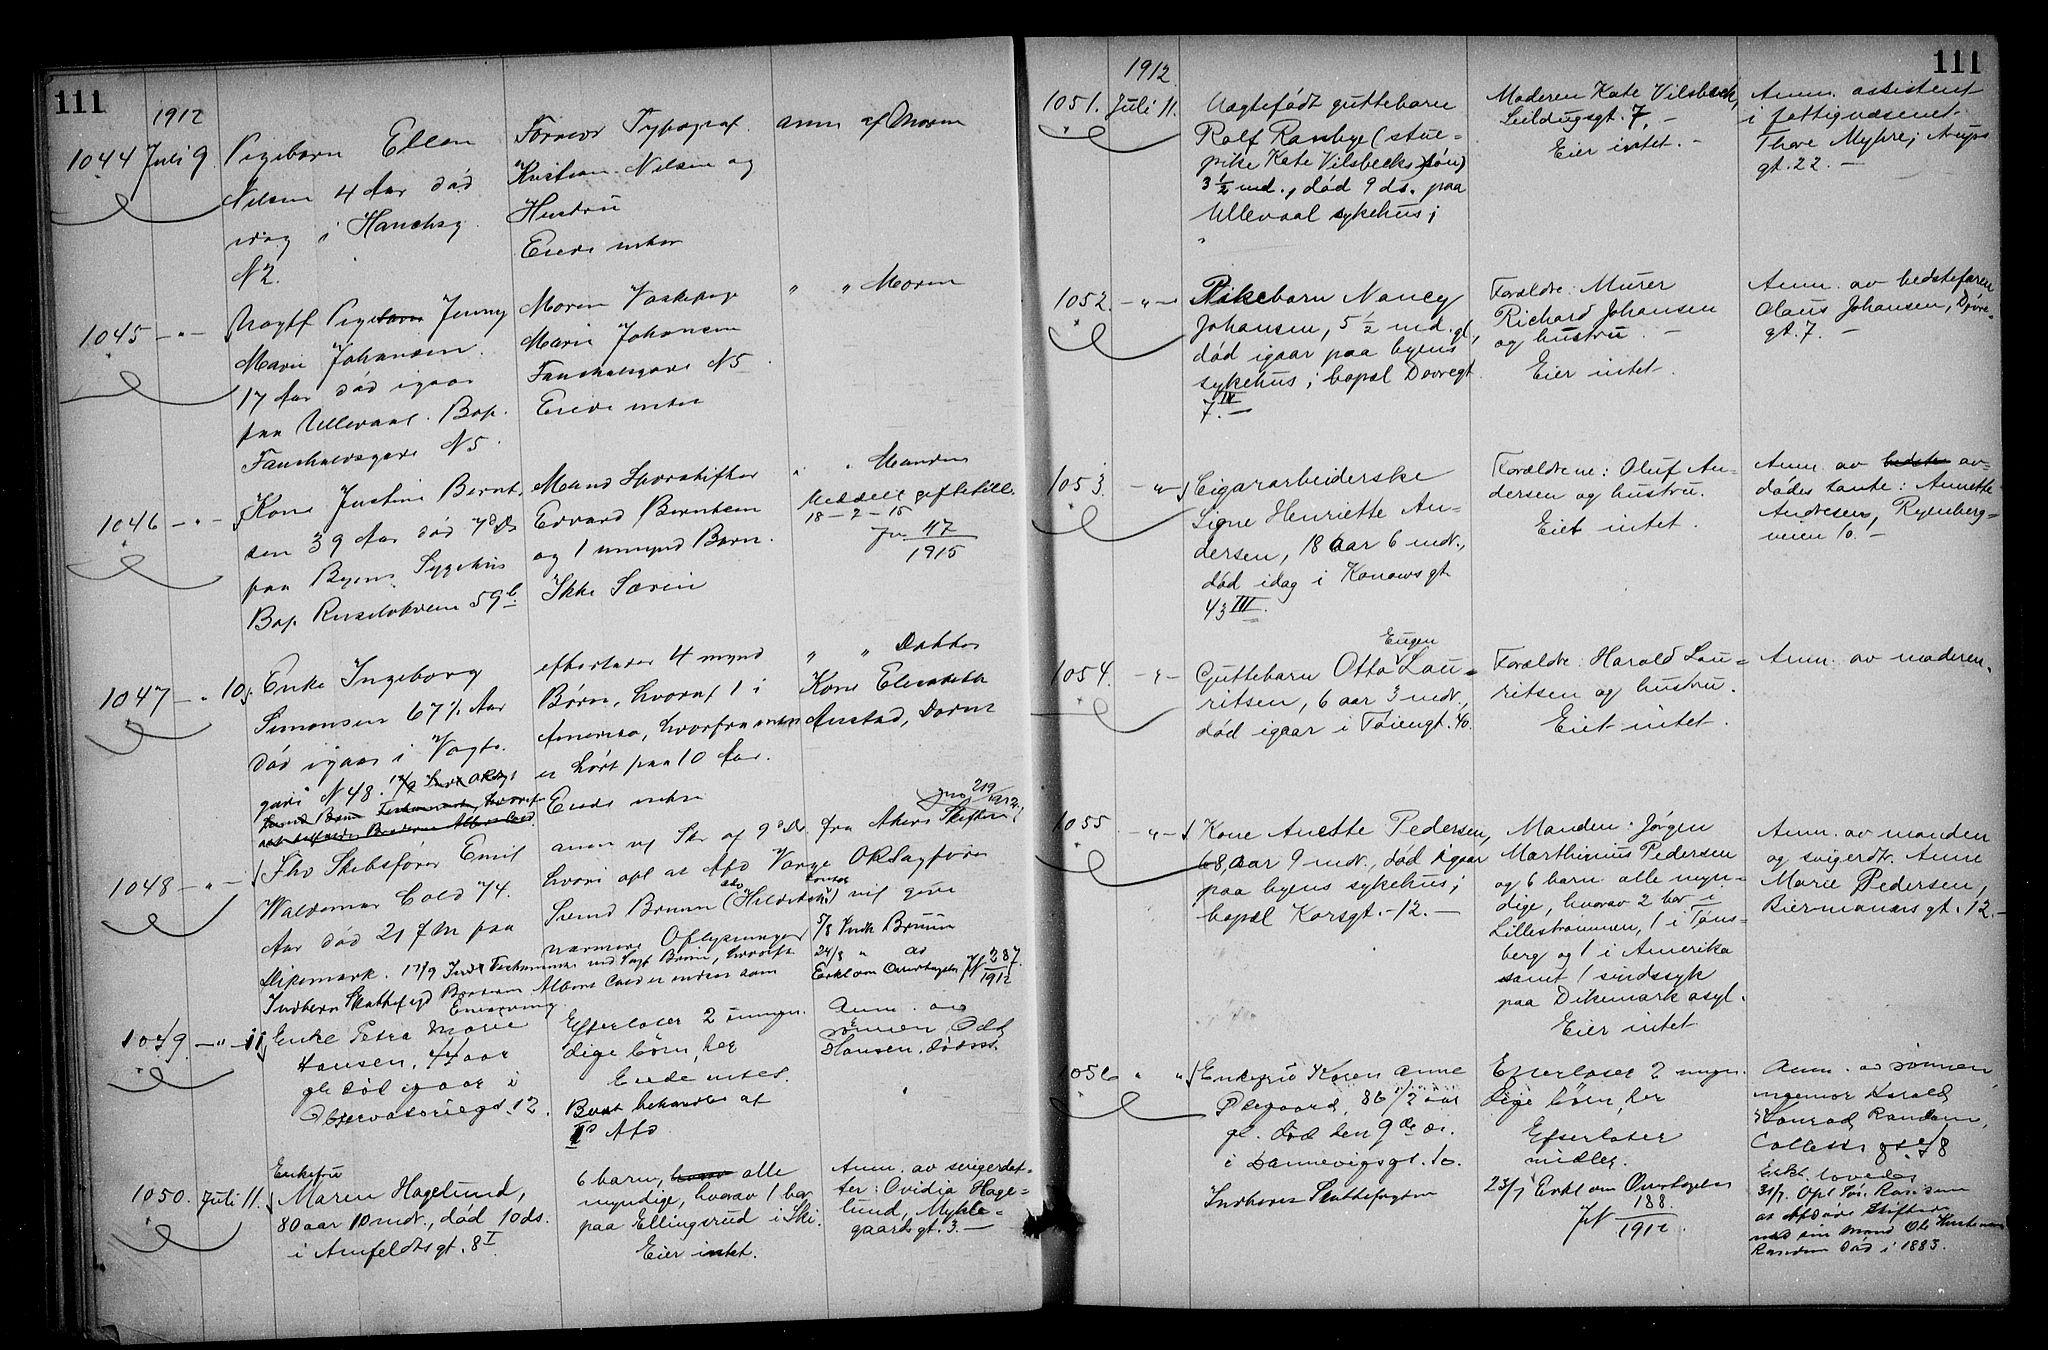 111
1912
1044 Juli 9. Pigebarn Ellen
Nilsen 4 Aar død
idag i
N 2.
Forældre Typograf
Kristian Nilsen og
Hustru
Eiede intet
Anm af Moren
1045 — " — Uægtf Pigebarn Jenny
Marie Johansen
17 Aar død igaar
paa Ullevaal. Bop.
Fauchaldsgade N 5
Moren Vaskepige
Marie Johansen
Fauchaldsgade N 5
Eiede intet
" " Moren
1046 — " — Kone Justine Bernt-
sen 39 Aar død 7d Ds
paa Byens Sygehus
Bop Ruseløkveien 59 b.
Mand
Edvard Berntsen
og 1 umynd Barn.
Ikke Særeie
" " Manden
Meddelt giftetill.
18-2-15
Jn 117
1915
1047 — " 10 Enke Ingeborg
Simonsen 67 ½ Aar
død igaar i Vogts
gade N 48.
efterlader 4 mynd
Børn, hvoraf 1 i
Amerika, hvorfra intet
er hørt paa 10 Aar.
Eiede intet
" " Datter
Kone Elisabeth
1048 — " — Fhv Skibsfører Emil
Waldemar Cold 74
Aar død 21 f M paa
Dikemark.
anm af Skr af 9d Ds fra Akers Skifteret
hvori opl at Afd Værge ORSagfører
Svend Bruun vil give
nærmere Oplysninger
jno 219/1912
5/8 Indk Bruun
24/8 " as
Erkl om Overtagelse JN 287
1912
1049. — " — 11 Enke Petra Marie
Hansen, 44 aar
gl. død igaar i
Observatoriegd. 12.
Efterlater 2 umyn-
dige børn, her
Eiede intet.
Boet behandles af
IIs Afd
Anm. av
sønnen, Odd
Hansen, dødsst.
1050. Juli 11. Enkefru
Maren Hagelund,
80 aar 10 mdr., død 10 ds.
i Armfeldtsgt. 8 I
6 barn, hvorav alle
myndige, hvorav 1 bor
paa Ellingsrud i Ski.
Eier intet.
Anm. av svigerdat-
ter: Ovidia Hage-
lund, Myhle-
gaardsgt. 3. —
111
1912
1051. Juli 11. Uægtefødt guttebarn
Rolf Ranbye (stue-
pike Kate Vilsbecks søn)
3 ½ md., død 9 ds. paa
Ullevaal sykehus;
Moderen Kate Vilsbeck,
Seildugsgt. 7. —
Eier intet. —
Anm. assistent
i fattigvæsenet
Thore Myhre, Arups
gt. 22. —
1052. — " — Pikebarn Nancy
Johansen, 5 ½ md. gl,
død igaar paa byens
sykehus; bopæl Dovregt.
7. IV —
Forældre: Murer
Richard Johansen
og hustru. —
Eier intet.
Anm. av bedstefaren
Claus Johansen, Dovre-
gt. 7. —
1053. — " — Cigararbeiderske
Signe Henriette An-
dersen, 18 aar 6 mdr.,
død idag i Konowsgt.
43 III.
Forældrene: Oluf An-
dersen og hustru.
Eiet intet.
Anm. av bedste av-
dødes tante: Annette
Andresen, Ryenberg-
veien 10. —
1054. — " — Guttebarn Otto Eugen Lau-
ritsen, 6 aar 3 mdr.,
død igaar i Tøiengt. 40.
Forældre: Harald Lau-
ritsen og hustru.
Eiet intet.
Anm. av moderen.
1055 — " — Kone Anette Pedersen,
68 aar 9 mdr., død igaar
paa byens sykehus;
bopæl Korsgt. 12. —
Manden: Jørgen
Marthinius Pedersen
og 6 barn alle myn-
dige, hvorav 2 bor i
Lillestrømmen, 1 i Tøns-
berg og 1 i Amerika
samt 1 sindssyk
paa Dikemark asyl.
Eier intet
Anm. av manden
og svigerdt. Anne
Marie Pedersen,
Biermannsgt. 12. —
1056 " " Enkefru Karen Anne
86 ½ aar
gl. død den 9de ds.
i Dannevigsgt. 10.
Indberes Skattefogden
Efterlater 2 myn-
dige børn, her
Efterlater
midler.
23/7 Erkl om Overtagelse
JN 188
1912
Anm. av sønnen,
ingeniør Harald
Konrad Randem,
Collettsgt.
Erkl. lovedes
31/7. Opl
at Afdøde skiftede
med sin Mand Ole
Randem død i 1883.